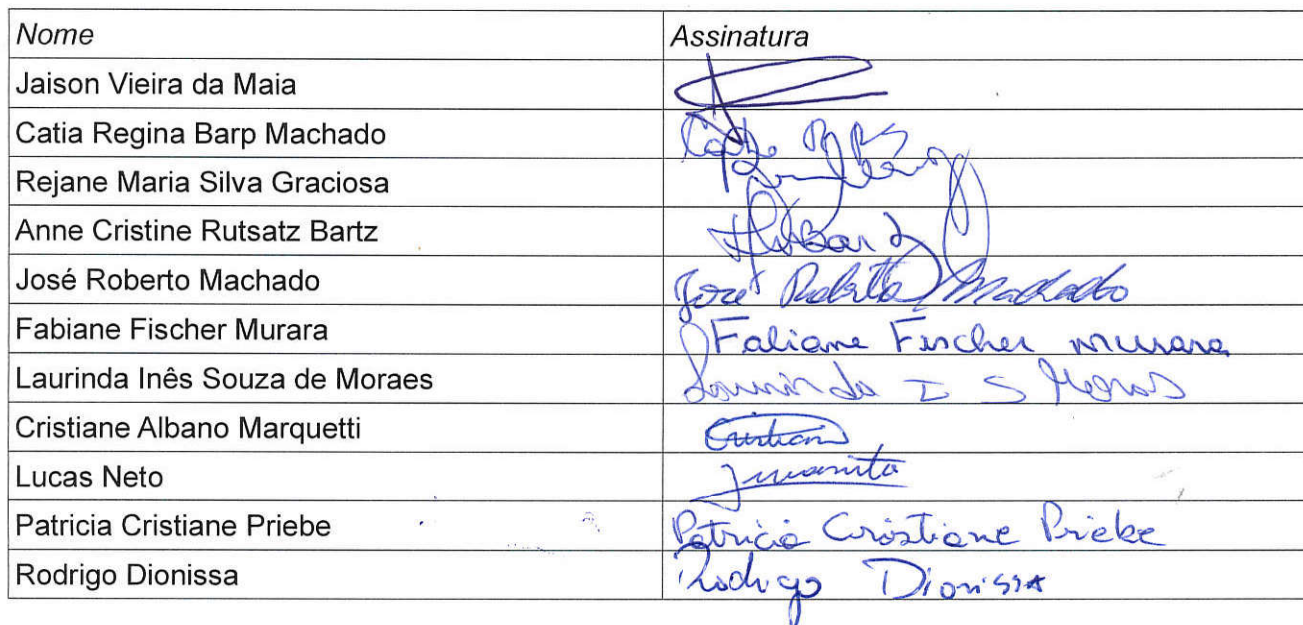 Nome Assinatura
Jaison Vieira da Maia
Catia Regina Barp Machado
Rejane Maria Silva Graciosa
Anne Cristine Rutsatz Bartz
José Roberto Machado José Roberto Machado
Fabiane Fischer Murara Fabiane Fischer Murara
Laurinda Inês Souza de Moraes Laurinda I S Moraes
Cristiane Albano Marquetti
Lucas Neto
Patricia Cristiane Priebe Patricia Cristiane Priebe
Rodrigo Dionissa Rodrigo Dionissa